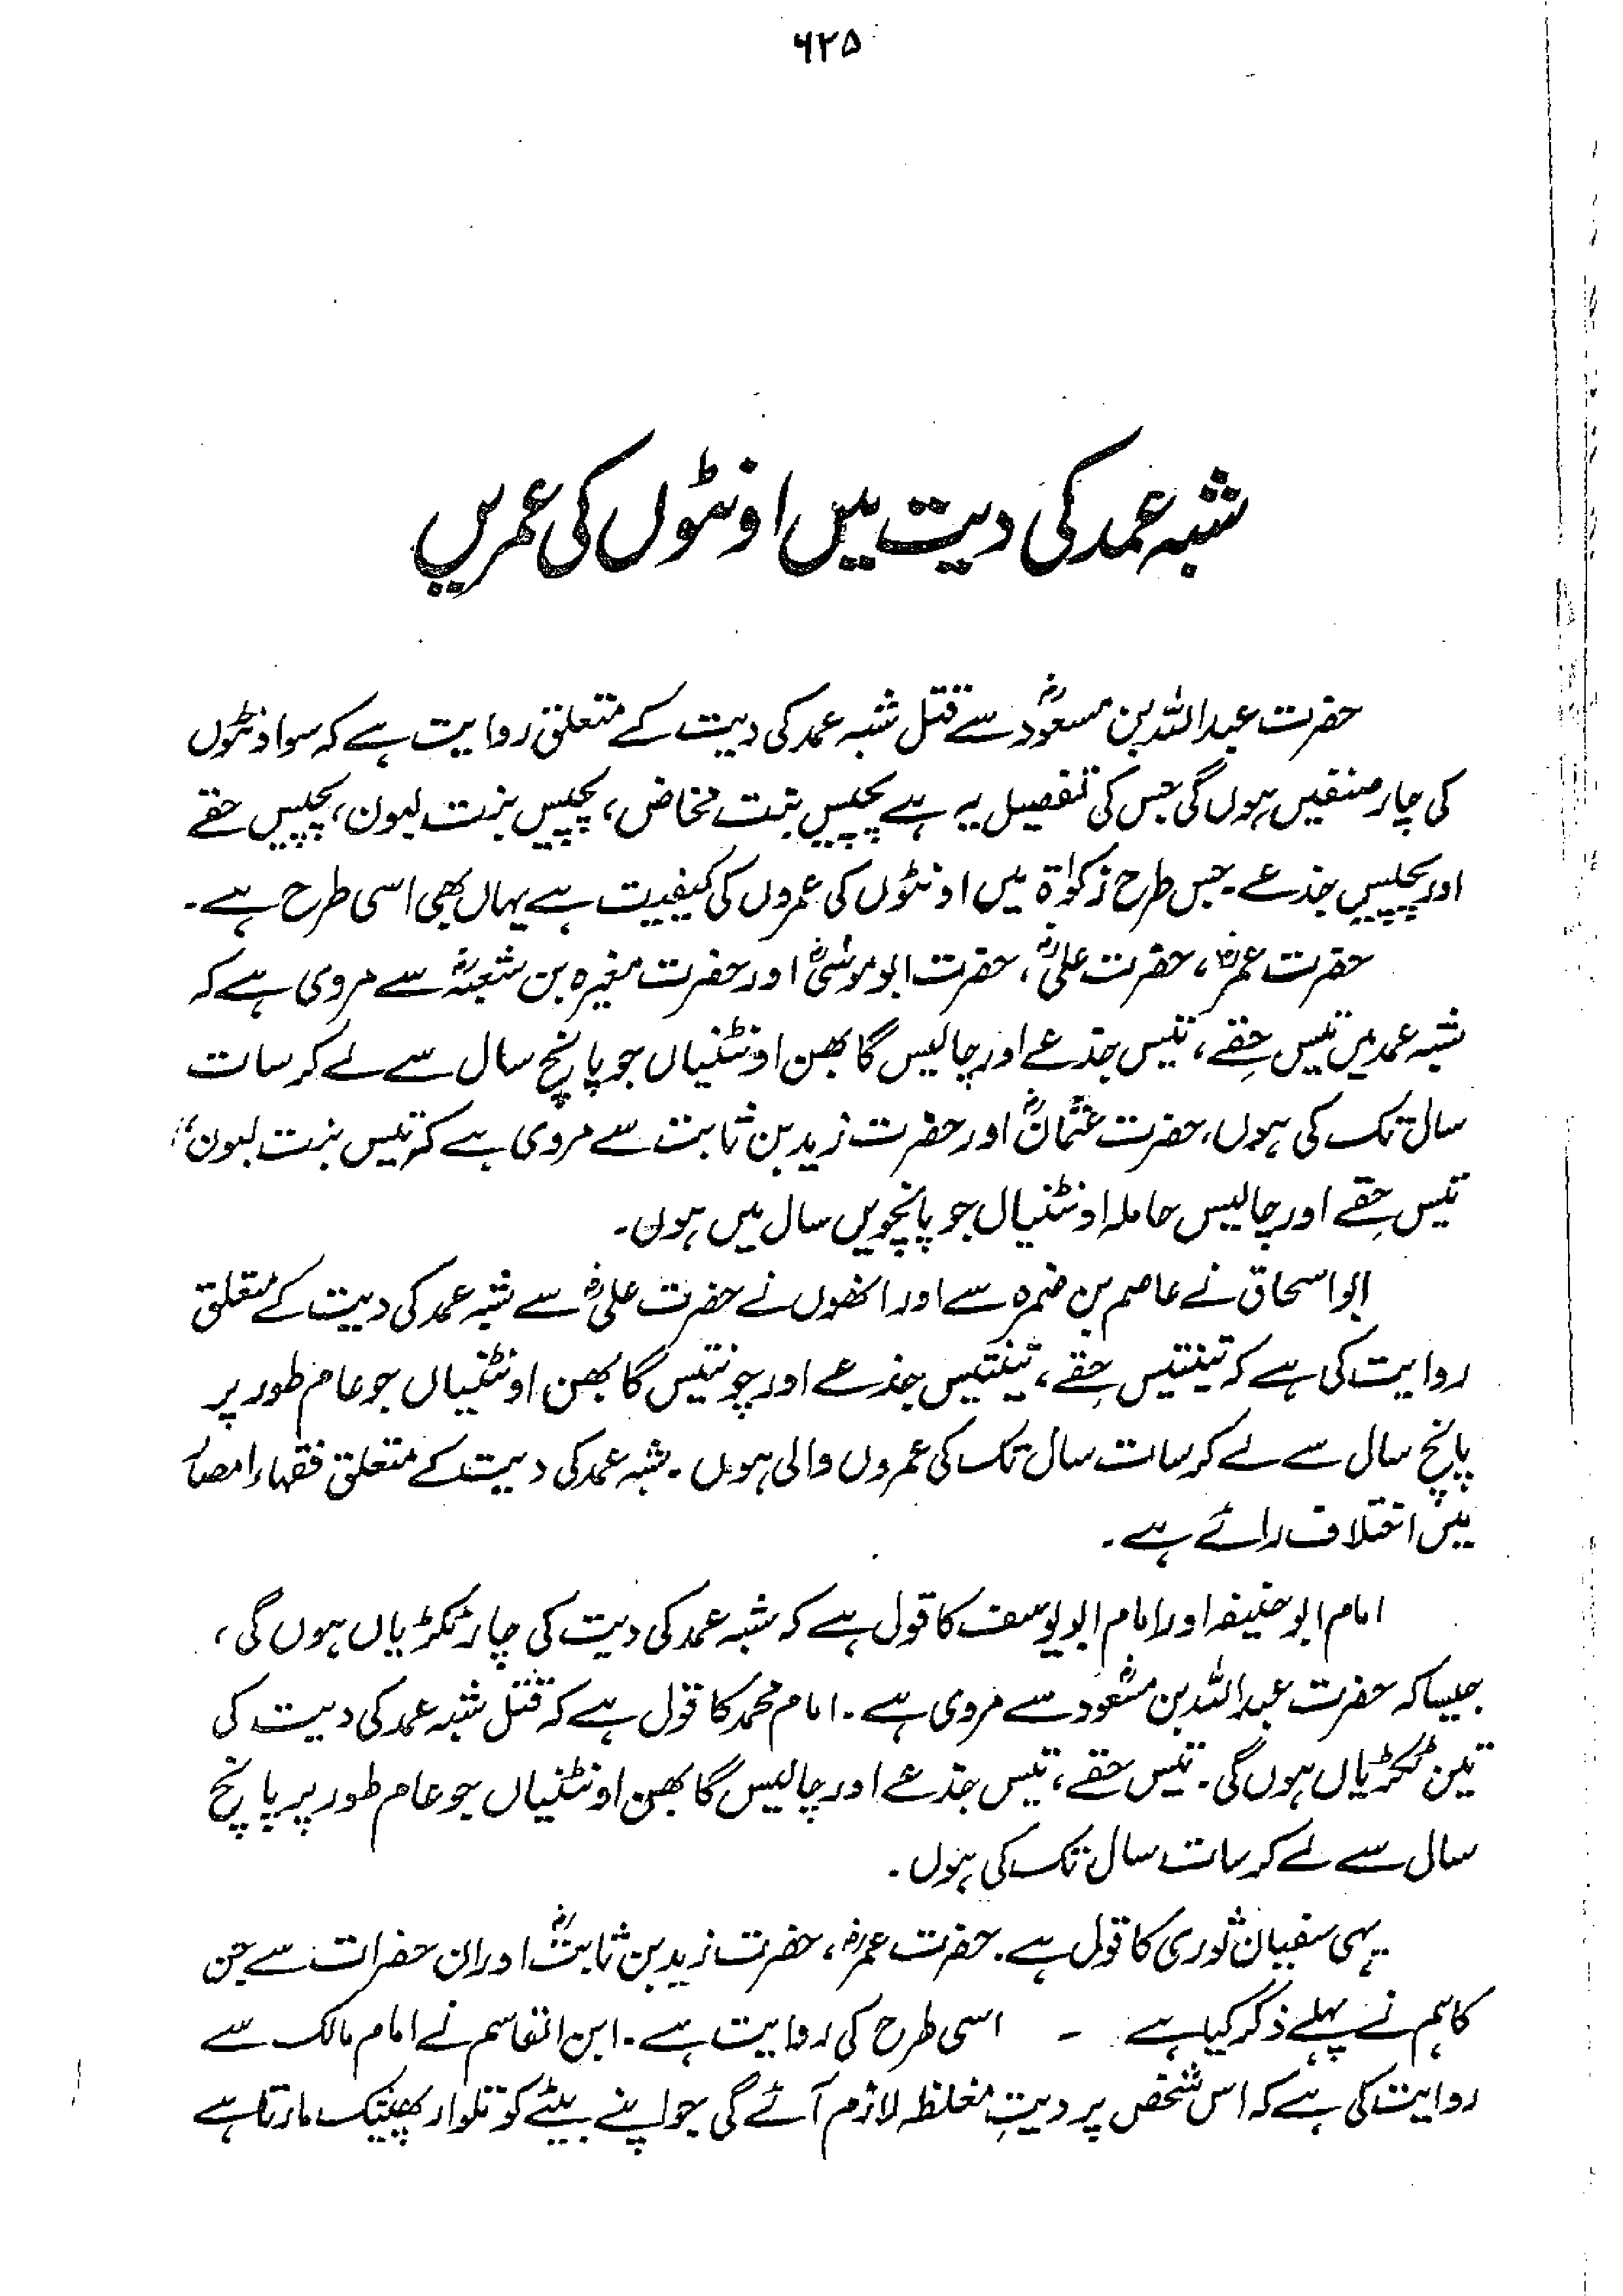 ۶۲۵
شبہ عمد کی دیت میں اونٹوں کی عمریں
حضرت عبداللہ بن مسعودؓ سے قتل شبہ عمد کی دیت کے متعلق روایت ہے کہ سو اونٹوں
کی چار صنفیں ہوں گی جس کی تفصیل یہ ہے پچیس بنت مخاض، پچیس بنت لبون، پچیس حقے
اور پچیس جذعے۔ جس طرح زکواۃ میں اونٹوں کی عمروں کی کیفیت ہے یہاں بھی اسی طرح ہے۔
حضرت عمرؓ، حضرت علیؓ، حضرت ابوموسیٰؓ اور حضرت مغیرہ بن شعبہؓ سے مروی ہے کہ
شبہ عمد میں تیس حِقے، تیس جذعے اور چالیس گابھن اونٹنیاں جو پانچ سال سے لے کر سات
سال تک کی ہوں، حضرت عثمانؓ اور حضرت زید بن ثابت سے مروی ہے کہ تیس بنت لبون،
تیس حِقے اور چالیس حاملہ اونٹنیاں جو پانچویں سال میں ہوں۔
ابو اسحاق نے عاصم بن ضمرہ سے اور انھوں نے حضرت علیؓ سے شبہ عمد کی دیت کے متعلق
روایت کی ہے کہ تینتیس حِقے، تینتیس جذعے اور چونتیس گابھن اونٹنیاں جو عام طور پر
پانچ سال سے لے کر سات سال تک کی عمروں والی ہوں۔ شبہ عمد کی دیت کے متعلق فقہاء امصار
میں اختلاف رائے ہے۔
امام ابو حنیفہ اور امام ابو یوسف کا قول ہے کہ شبہ عمد کی دیت کی چار ٹکڑیاں ہوں گی،
جیسا کہ حضرت عبداللہ بن مسعودؓ سے مروی ہے۔ امام محمد کا قول ہے کہ قتل شبہ عمد کی دیت کی
تین ٹکڑیاں ہوں گی۔ تیس حقے، تیس جذعے اور چالیس گابھن اونٹنیاں جو عام طور پر پانچ
سال سے لے کر سات سال تک کی ہوں۔
یہی سفیان ثوری کا قول ہے۔ حضرت عمرؓ، حضرت زید بن ثابتؓ اور ان حضرات سے جن
کا ہم نے پہلے ذکر کیا ہے ۔ اسی طرح کی روایت ہے۔ ابن القاسم نے امام مالک سے
روایت کی ہے کہ اس شخص پر دیتِ مغلظہ لازم آئے گی جو اپنے بیٹے کو تلوار پھینک مارتا ہے